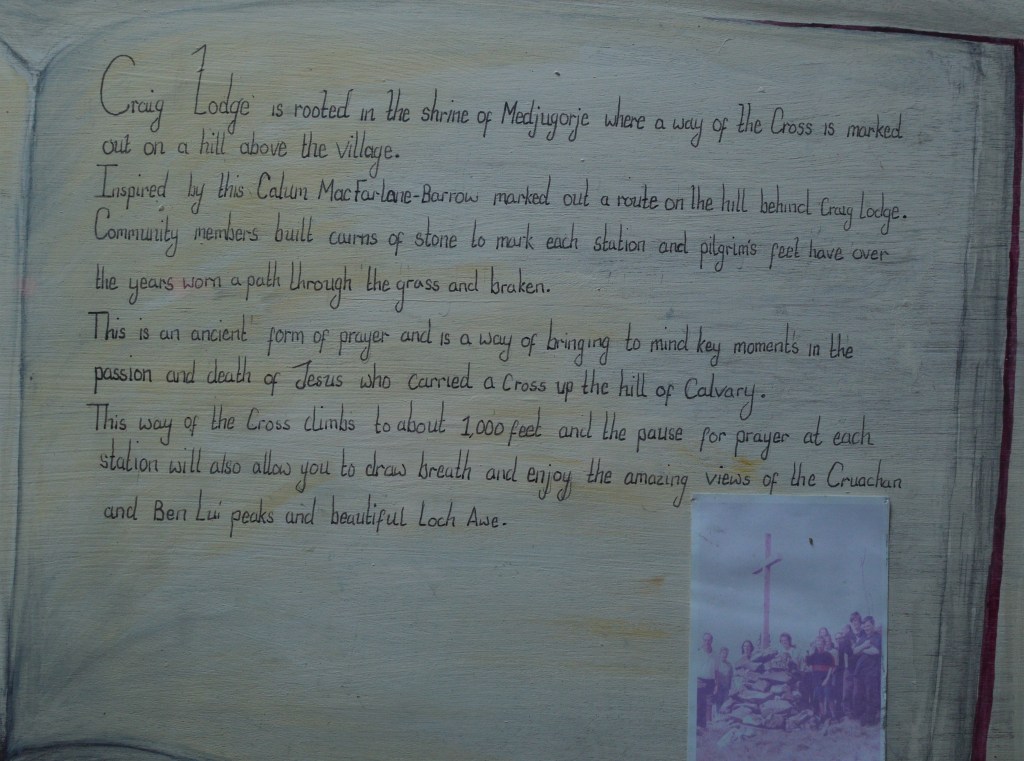 Craig Lodge is rooted in the shrine of Medjugorje where a way of the Cross is marked
out on a hill above the village.
Inspired by this Calum MacFarlane-Barrow marked out a route on the hill behind Craig Lodge.
Community members built cairns of stone to mark each station and pilgrim's feet have over
the years worn a path through the grass and braken.
This is an ancient form of prayer and is a way of bringing to mind key moments in the
passion and death of Jesus who carried a Cross up the hill of Calvary.
This way of the Cross climbs to about 1,000 feet and the pause for prayer at each
station will also allow you to draw breath and enjoy the amazing views of the Cruachan
and Ben Lui peaks and beautiful Loch Awe.